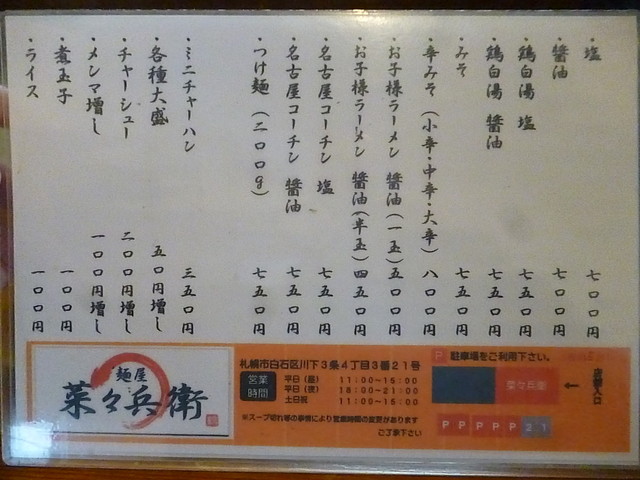 ・塩 七〇〇円
・醤油 七〇〇円
・鶏白湯 塩 七五〇円
・鶏白湯 醤油 七五〇円
・みそ 七五〇円
・辛みそ (小辛・中辛・大辛) 八〇〇円
・お子様ラーメン 醤油(一玉) 五〇〇円
・お子様ラーメン 醤油(半玉) 四五〇円
・名古屋コーチン 塩 七五〇円
・名古屋コーチン 醤油 七五〇円
・つけ麺 (二〇〇g) 七五〇円
・ミニチャーハン 三五〇円
・各種大盛 五〇円増し
・チャーシュー 二〇〇円増し
・メンマ増し 一〇〇円増し
・煮玉子 一〇〇円
・ライス 一〇〇円
麺屋
菜々兵衛
札幌市白石区川下3条4丁目3番21号
営業時間
平日(昼) 11:00~15:00
平日(夜) 18:00~21:00
土日祝 11:00~15:00
※スープ切れ等の事情により営業時間の変更があります
ご了承下さい
P 駐車場をご利用下さい。
菜々兵衛
←
店舗入口
P P P P P 2 1